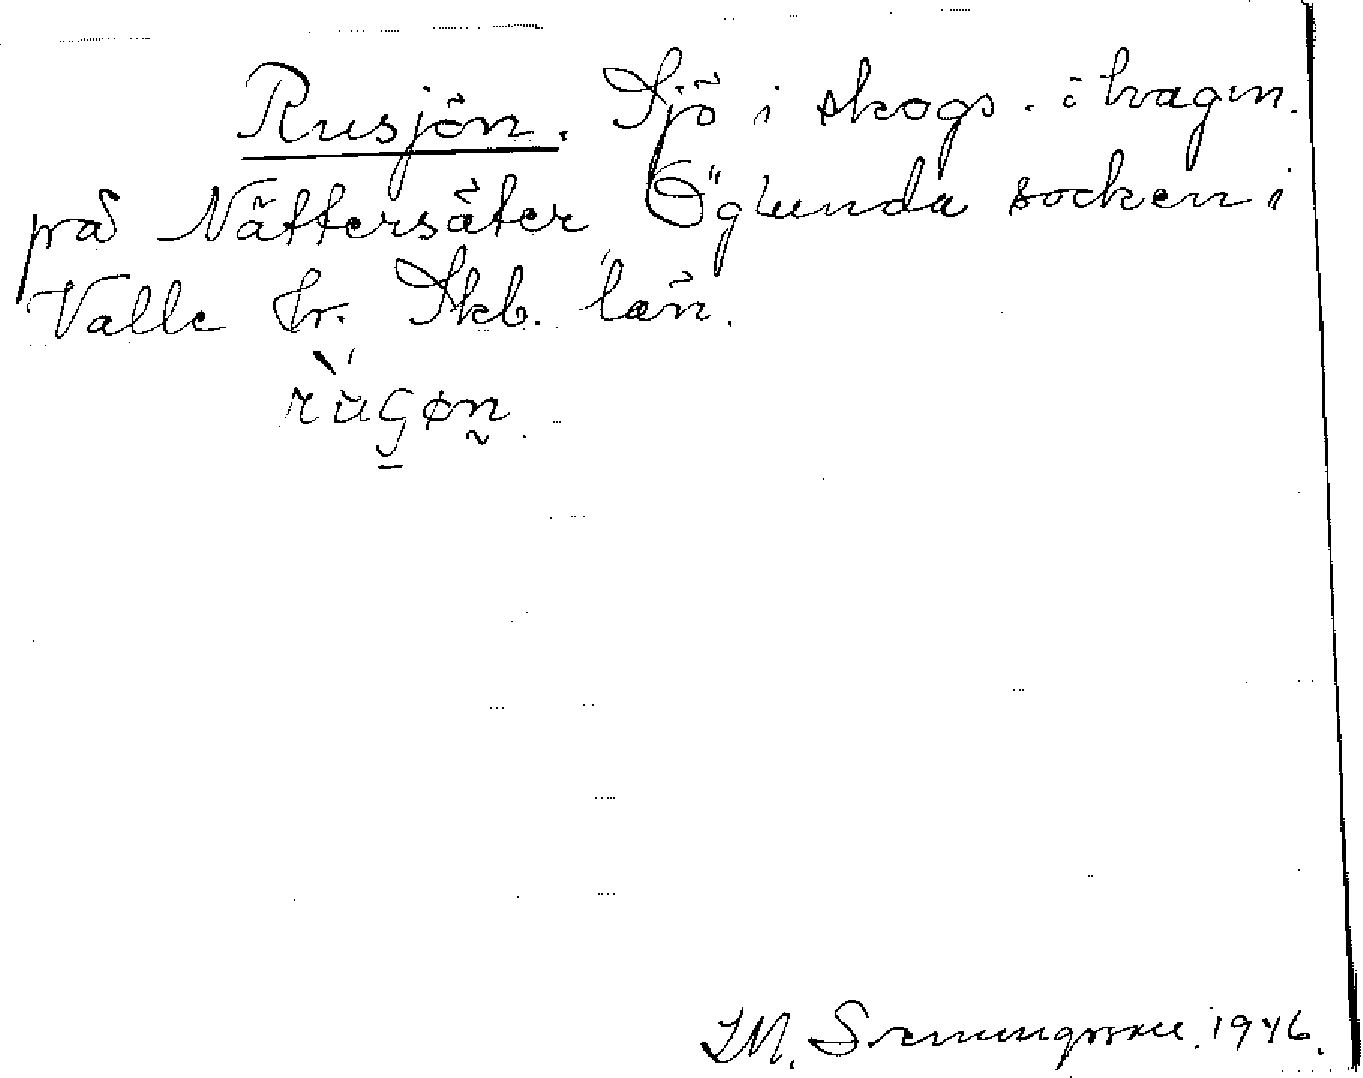 Rusjön. Sjö i skogs. i hagen.
på Nättersäter, Öglunda socken i
Valle hr. Skb. län.
rùgøn.
J.M. Svenungsson. 1946.